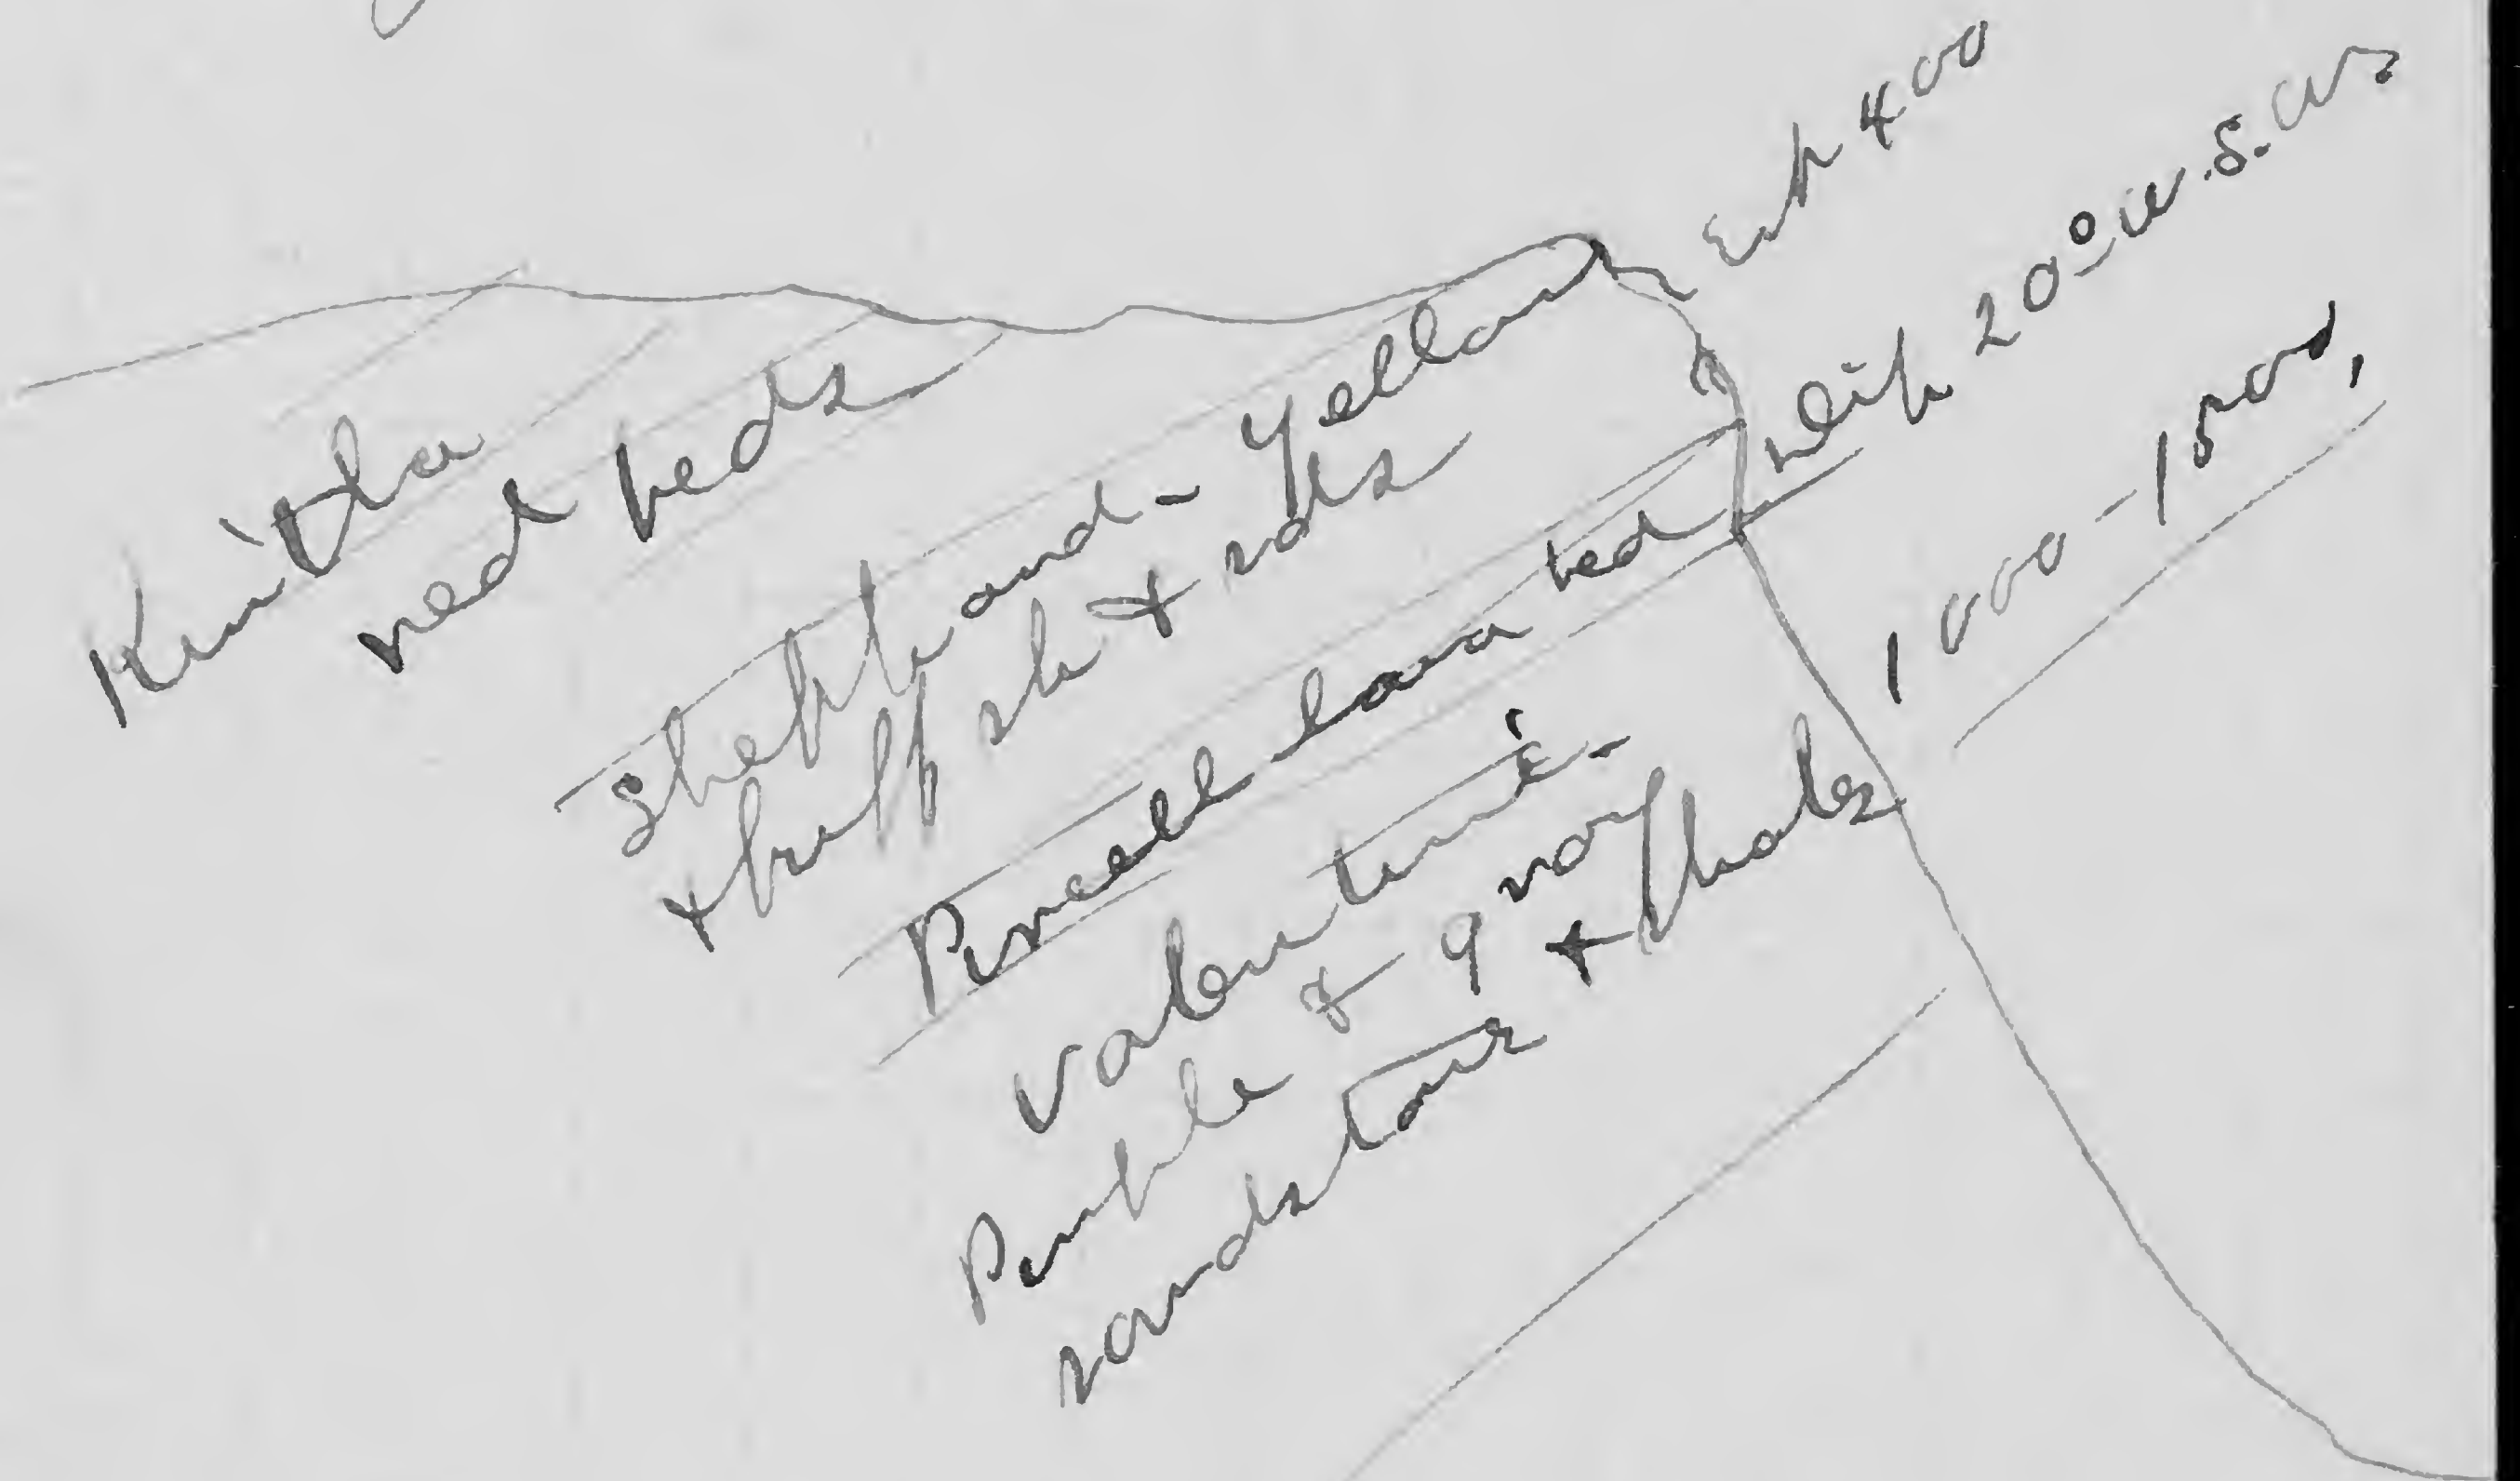 Kintla
red beds
Sheppard - Yellow
+ buff sh + sds
Est 400
Purcell lava bed
Dip 20° W.S.W
Valentine -
Purple & g nar
sandstone + shales
1000 - 1500,